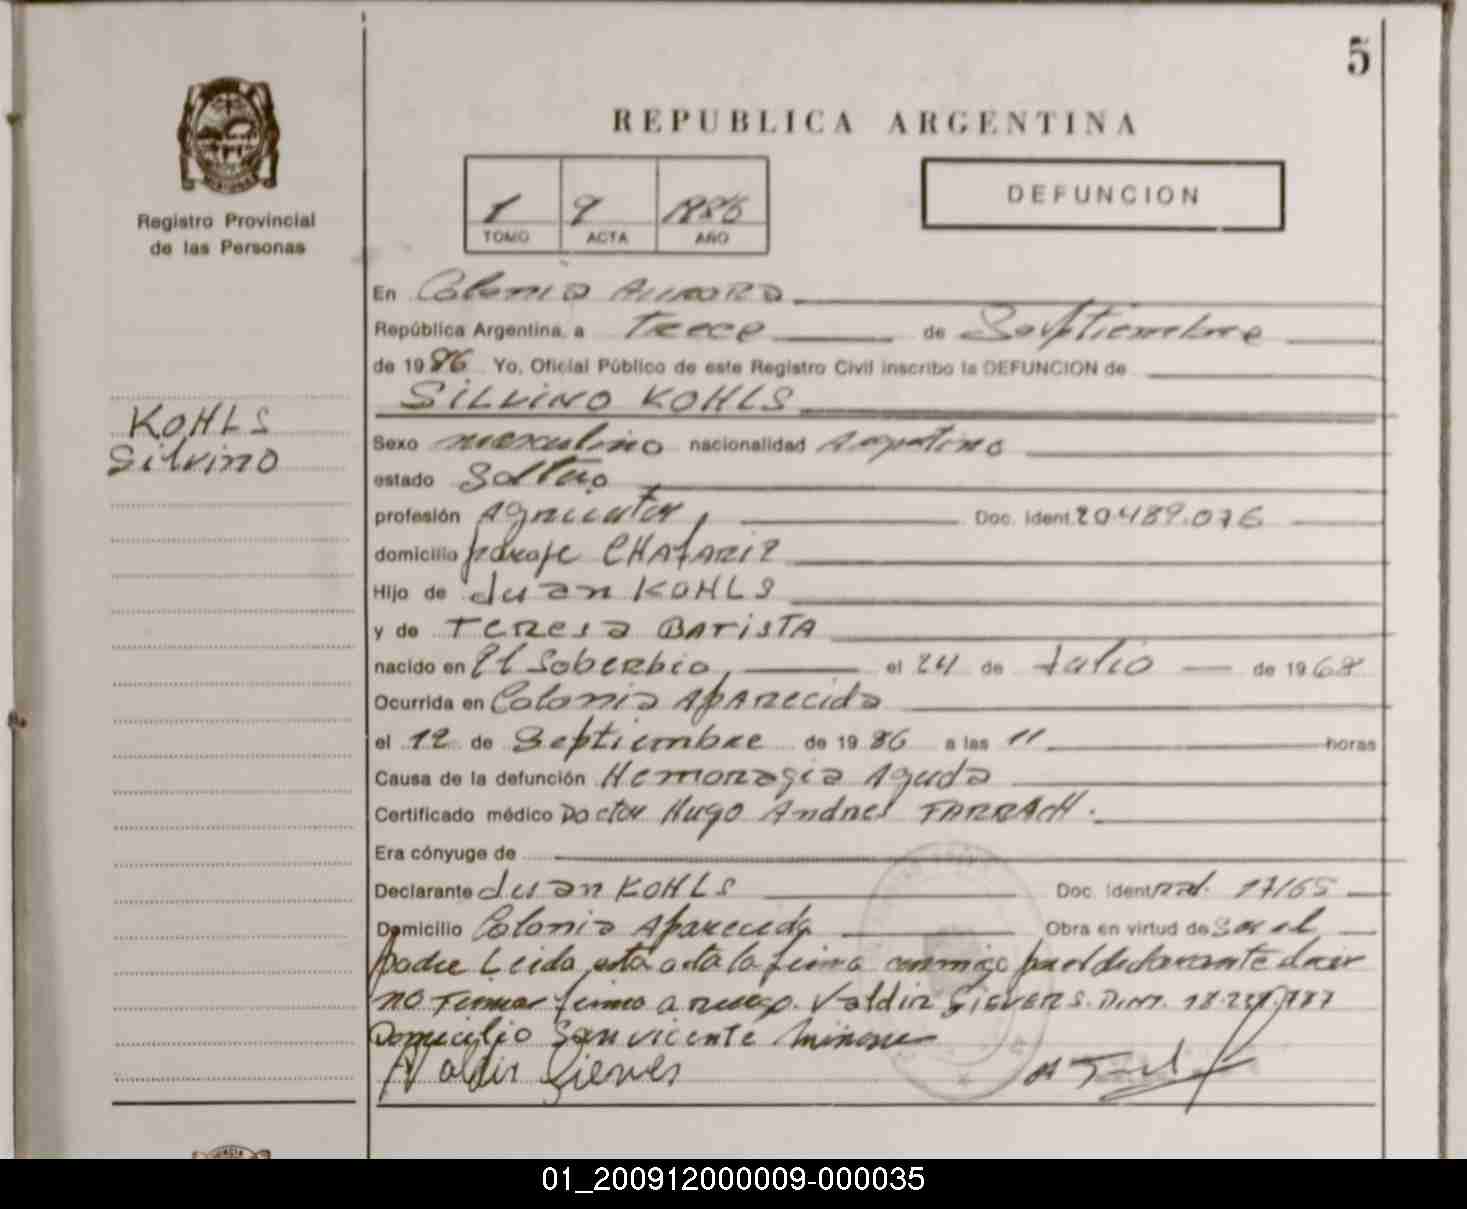 5
REPUBLICA ARGENTINA
Registro Provincial
de las Personas
1 9 1986
TOMO ACTA AÑO
DEFUNCION
En Colonia AURORA
República Argentina, a Trece de Septiembre
de 1986 Yo, Oficial Público de este Registro Civil inscribo la DEFUNCION de
SILVINO KOHLS
KOHLS
Silvino
Sexo masculino nacionalidad Argentino
estado Soltero
profesión Agricultor, Doc. Ident. 20.489.076
domicilio paraje CHAFARIZ
Hijo de Juan KOHLS
y de TERESA BATISTA
nacido en El Soberbio, el 24 de Julio de 1968
Ocurrida en Colonia Aparecida
el 12 de Septiembre de 1986 a las 11 horas
Causa de la defunción Hemorragia Aguda
Certificado médico Doctor Hugo Andres FARRACH.
Era cónyuge de
Declarante Juan KOHLS Doc. Ident. 17165
Domicilio Colonia Aparecida Obra en virtud de Ser el
padre Leida esta acta la firma conmigo por el declarante decir
no Firmar firma a ruego. Valdir SIEVERS. D.N.I.
Domicilio San Vicente Misiones
Valdir Sievers
01_200912000009-000035